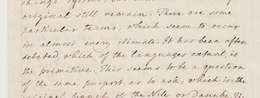 original still remain. There are some
particular terms, which seem to occur
in almost every climate. It has been often
debated which of the languages extant is
the primitive. This seems to be a question
of the same purport as to ask, which is the
original branch of the Nile or Danube